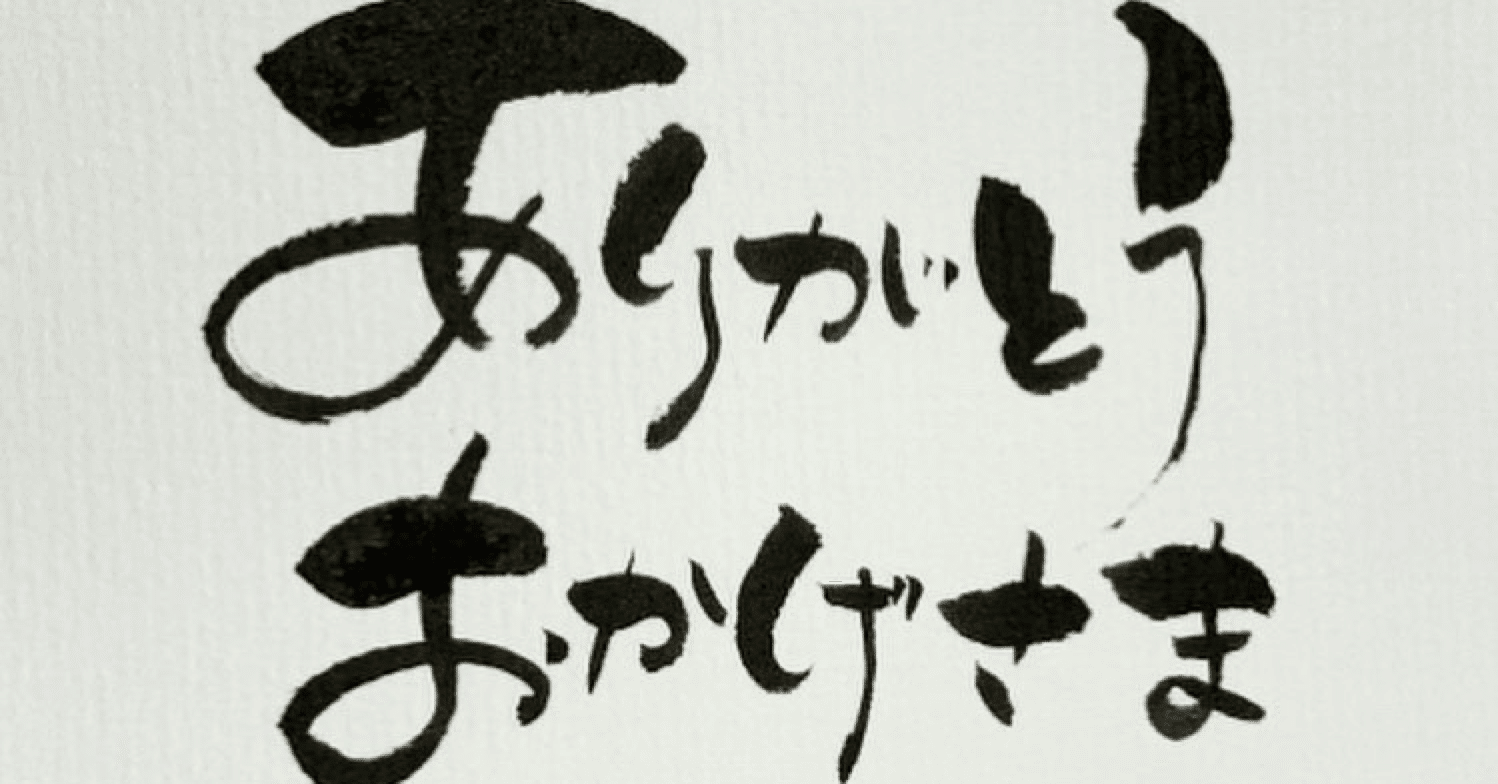 ありがとう
おかげさま